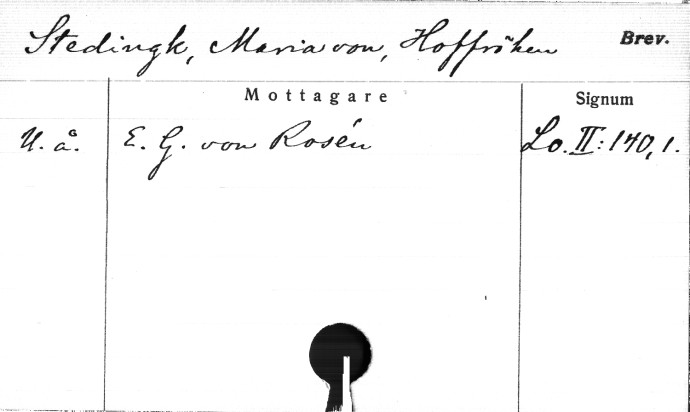 Stedingk, Maria von, Hoffröken Brev.
Mottagare Signum
U. å. E. G. von Rosén Lo. II: 140, 1.